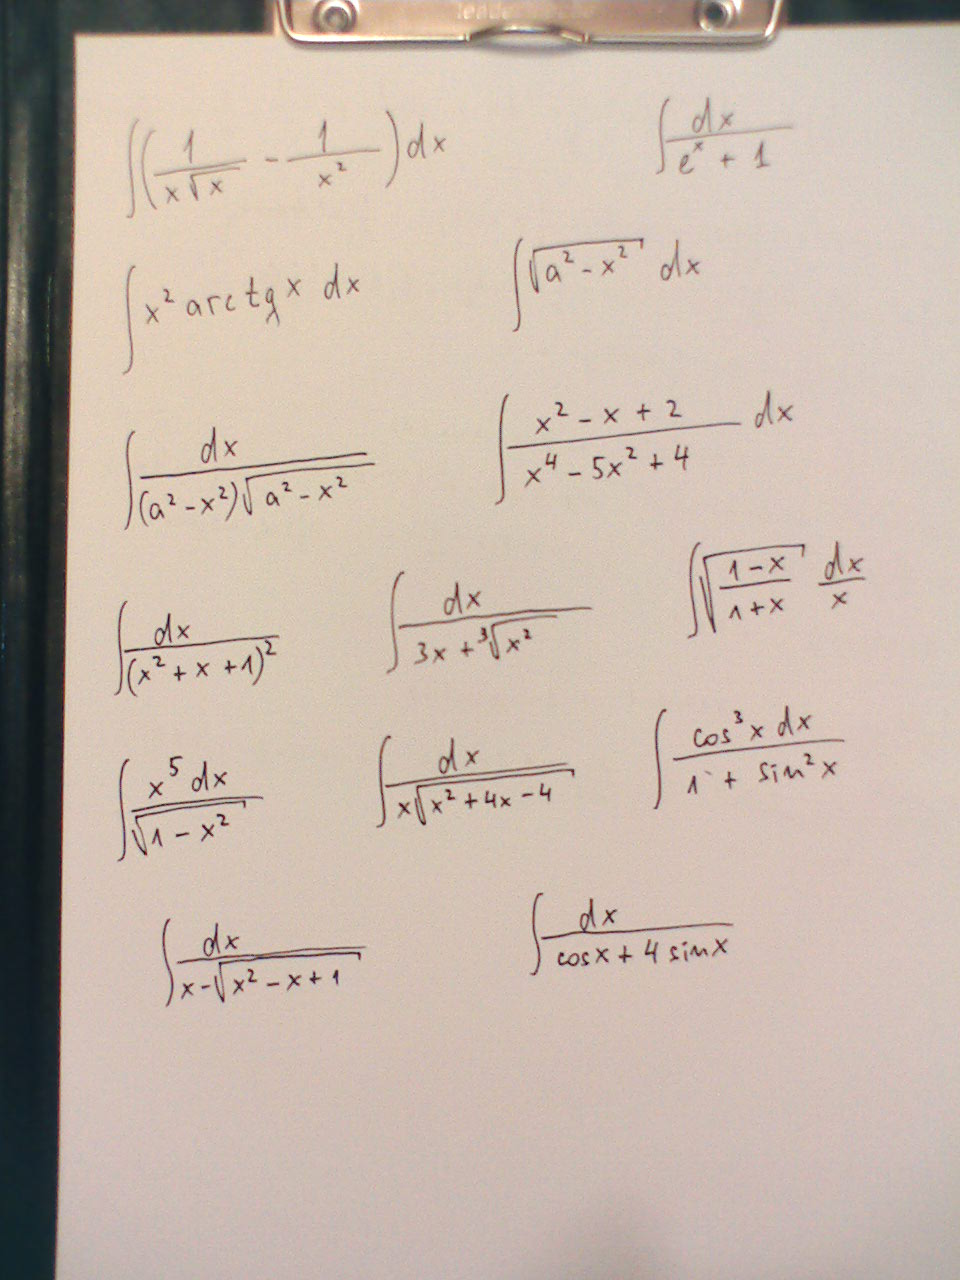 ∫(1/(x√x) - 1/x²)dx ∫dx/(e^x + 1)
∫x² arctg x dx ∫√(a² - x²) dx
∫dx/((a² - x²)√(a² - x²)) ∫(x² - x + 2)/(x⁴ - 5x² + 4) dx
∫dx/(x² + x + 1)² ∫dx/(3x + ³√(x²)) ∫√((1 - x)/(1 + x)) dx/x
∫x⁵ dx/√(1 - x²) ∫dx/(x√(x² + 4x - 4)) ∫cos³x dx/(1 + sin²x)
∫dx/(x - √(x² - x + 1)) ∫dx/(cosx + 4 sinx)